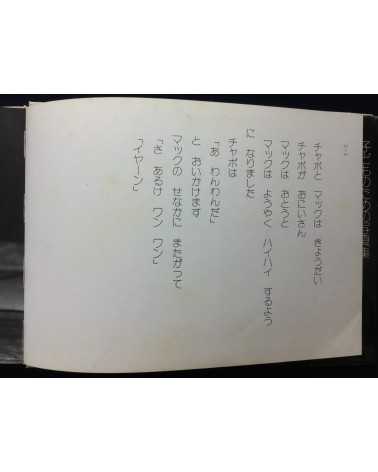 チャボと マックは きょうだい
チャボが おにいさん
マックは おとうと
マックは ようやく ハイハイ するよう
に なりました
チャボは
「あ わんわんだ」
と おいかけます
マックの せなかに またがって
「さ あるけ ワン ワン」
「イヤーン」